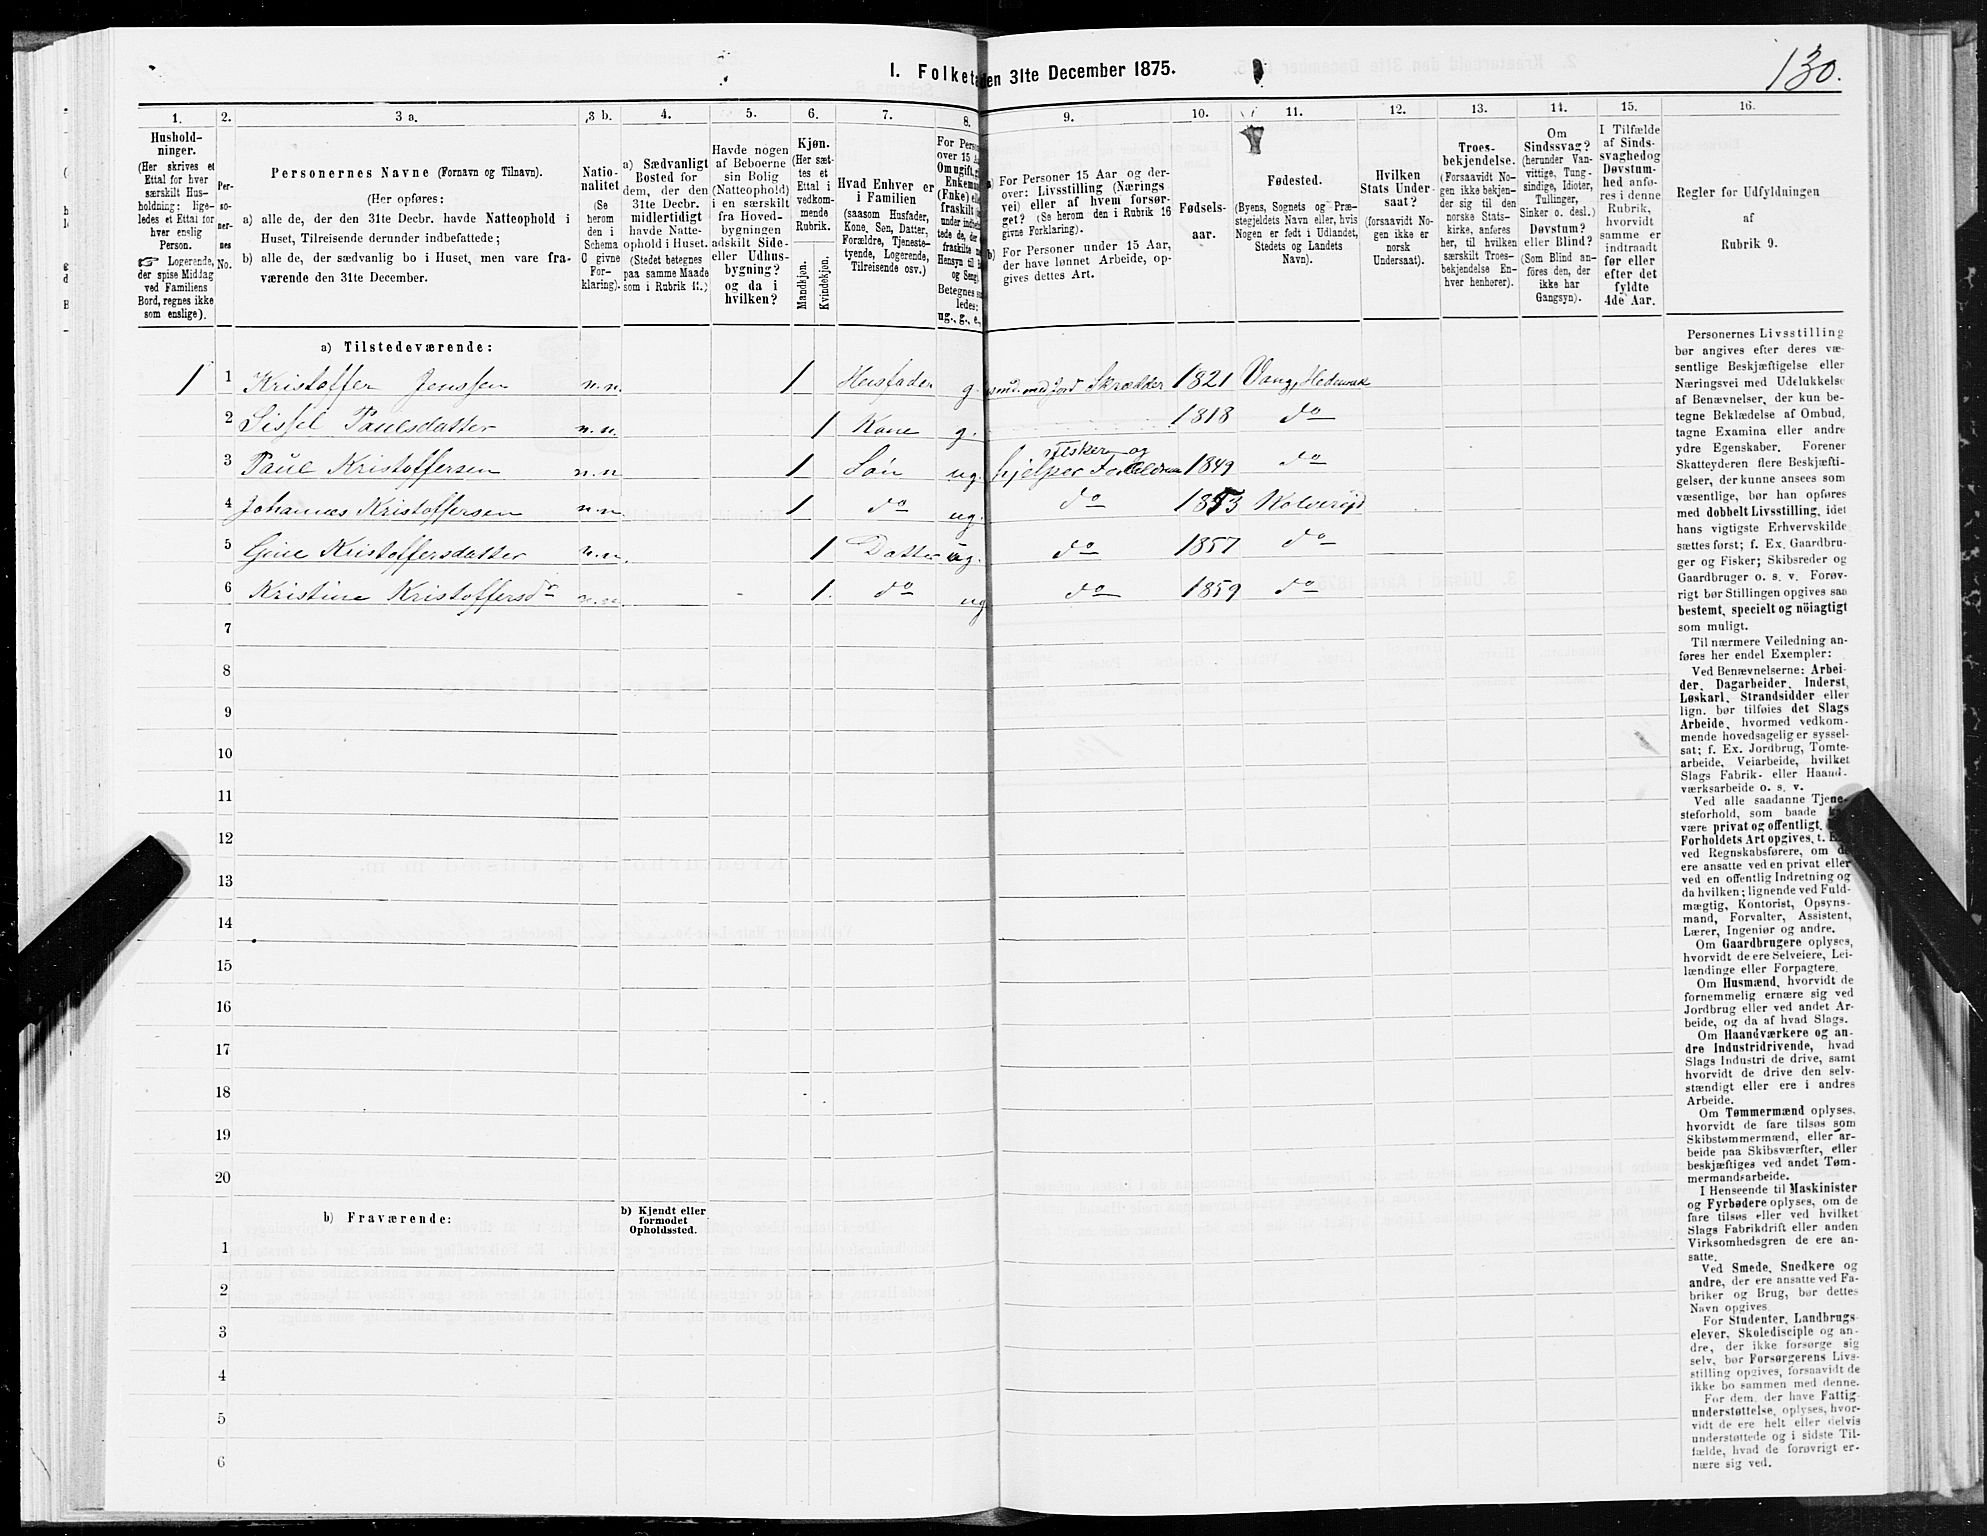 130.
I. Folketa en 31te December 1875.
1. 2. 3 a. 3 b. 4. 5. 6. 7. 8. 9. 10. 11. 12. 13. 14. 15. 16.
Hushold-
ninger.
(Her skrives et
Ettal for hver
særskilt Hus-
holdning: lige-
ledes et Ettal for
hver enslig
Person.
☞ Logerende,
der spise Middag
ved Familiens
Bord, regnes ikke
som enslige).
Per-
so-
ner-
nes
No.
Personernes Navne (Fornavn og Tilnavn).
(Her opføres:
a) alle de, der den 31te Decbr. havde Natteophold i
Huset, Tilreisende derunder indbefattede;
b) alle de, der sædvanlig bo i Huset, men vare fra-
værende den 31te December.
Natio-
nalitet
(Se
herom
den i
Schema
C givne
For-
klaring).
a) Sædvanligt
Bosted for
dem, der den
31te Decbr.
midlertidigt
havde Natte-
ophold i Huset.
(Stedet betegnes
paa samme Maade
som i Rubrik 11.)
Havde nogen
af Beboerne
sin Bolig
(Natteophold)
i en særskilt
fra Hoved-
bygningen
adskilt Side-
eller Udhus-
bygning?
og da i
hvilken?
Kjøn.
(Her sæt-
tes et
Ettal i
vedkom-
mende
Rubrik.
Mandkjøn.
Kvindekjøn.
Hvad Enhver er
i Familien
(saasom Husfader,
Kone, Søn, Datter,
Forældre, Tjeneste-
tyende, Logerende,
Tilreisende osv.)
For Pers
over 15 A
Om ugift, g
Enkem
(Enke) ell
fraskilt
under indbe
tede de, der
fraskilte
Hensyn til
og Seng)
Betegnes s
ledes:
ug., g., e.,
a) For Personer 15 Aar og der-
over: Livsstilling (Nærings
vei) eller af hvem forsør-
get? (Se herom den i Rubrik 16
givne Forklaring).
b) For Personer under 15 Aar,
der have lønnet Arbeide, op-
gives dettes Art.
Fødsels-
aar.
Fødested.
(Byens, Sognets og Præ-
stegjeldets Navn eller, hvis
Nogen er født i Udlandet,
Stedets og Landets
Navn).
Hvilken
Stats Under-
saat?
(forsaavidt No-
gen ikke er
norsk
Undersaat).
Troes-
bekjendelse.
(Forsaavidt No-
gen ikke bekjen-
der sig til den
norske Stats-
kirke, anføres
her, til hvilken
særskilt Troes-
bekjendelse En-
hver henhører).
Om
Sindssvag?
(herunder Van-
vittige, Tung-
sindige, Idioter,
Tullinger,
Sinker o. desl.)
Døvstum?
eller Blind?
(Som Blind an-
føres den, der
ikke har
Gangsyn).
I Tilfælde
af Sinds-
svaghedog
Døvstum-
hed anfø-
res i denne
Rubrik,
hvorvidt
samme er
indtraadt
før eller
efter det
fyldte
4de Aar.
Regler for Udfyldningen
af
Rubrik 9.
a) Tilstedeværende:
1 1 Kristoffer Jenssen n.n. 1 Husfader g. med Jord Skrædder 1821 Vang, Hedemark
2 Sissel Paulsdatter n.n. 1 Kone g. 1818 do
3 Paul Kristoffersen n.n 1 Søn ug. fisker og hjelper Forældrene 1849 do
4 Johannes Kristoffersen n.n. 1 do ug. do 1853
5 Gine Kristoffersdatter n.n. 1 Datter ug. do 1857 do
6 Kristine Kristoffersdr n.n. 1. do ug do 1859 do
7
8
9
10
11
12
13
14
15
16
17
18
19
20
b) Fraværende:
b) Kjendt eller
formodet
Opholdssted.
1
2
3
4
5
6
Personernes Livsstilling
bør angives efter deres væ-
sentlige Beskjæftigelse eller
Næringsvei med Udelukkelse
af Benævnelser, der kun be-
tegne Beklædelse af Ombud,
tagne Examina eller andre
ydre Egenskaber. Forener
Skatteyderen flere Beskjæfti-
gelser, der kunne ansees som
væsentlige, bør han opføres
med dobbelt Livsstilling, idet
hans vigtigste Erhvervskilde
sættes først; f. Ex. Gaardbru-
ger og Fisker; Skibsreder og
Gaardbruger o. s. v. Forøv-
rigt bør Stillingen opgives saa
bestemt, specielt og nöiagtigt
som muligt.
Til nærmere Veiledning an-
føres her endel Exempler:
Ved Benævnelserne: Arbei-
der, Dagarbeider, Inderst,
Løskarl, Strandsidder eller
lign. bør tilføies det Slags
Arbeide, hvormed vedkom-
mende hovedsagelig er syssel-
sat; f. Ex. Jordbrug, Tomte-
arbeide, Veiarbeide, hvilket
Slags Fabrik- eller Haand-
værksarbeide o. s. v.
Ved alle saadanne Tjene-
steforhold, som baade
være privat og offentligt,
Forholdets Art opgives, t.
ved Regnskabsførere, om
ere ansatte ved en privat eller
ved en offentlig Indretning og
da hvilken; lignende ved Fuld-
mægtig, Kontorist, Opsyns-
mand, Forvalter, Assistent,
Lærer, Ingeniør og andre.
Om Gaardbrugere oplyses,
hvorvidt de ere Selveiere, Lei-
lændinge eller Forpagtere.
Om Husmænd, hvorvidt de
fornemmelig ernære sig ved
Jordbrug eller ved andet Ar-
beide, og da af hvad Slags.
Om Haandværkere og an-
dre Industridrivende, hvad
Slags Industri de drive, samt
hvorvidt de drive den selv-
stændigt eller ere i andres
Arbeide.
Om Tømmermænd oplyses,
hvorvidt de fare tilsøs som
Skibstømmermænd, eller ar-
beide paa Skibsværfter, eller
beskjæftiges ved andet Tøm-
mermandsarbeide.
I Henseende til Maskinister
og Fyrbødere oplyses, om de
fare tilsøs eller ved hvilket
Slags Fabrikdrift eller anden
Virksomhedsgren de ere an-
satte.
Ved Smede, Snedkere og
andre, der ere ansatte ved Fa-
briker og Brug, bør dettes
Navn opgives.
For Studenter, Landbrugs-
elever, Skoledisciple og an-
dre, der ikke forsørge sig
selv, bør Forsørgerens Livs-
stilling opgives, forsaavidt de
ikke bo sammen med denne.
For dem, der have Fattig-
understøttelse, oplyses, hvor-
vidt de ere helt eller delvis
understøttede og i sidste Til-
fælde, hvad de forøvrigt er-
nære sig ved.